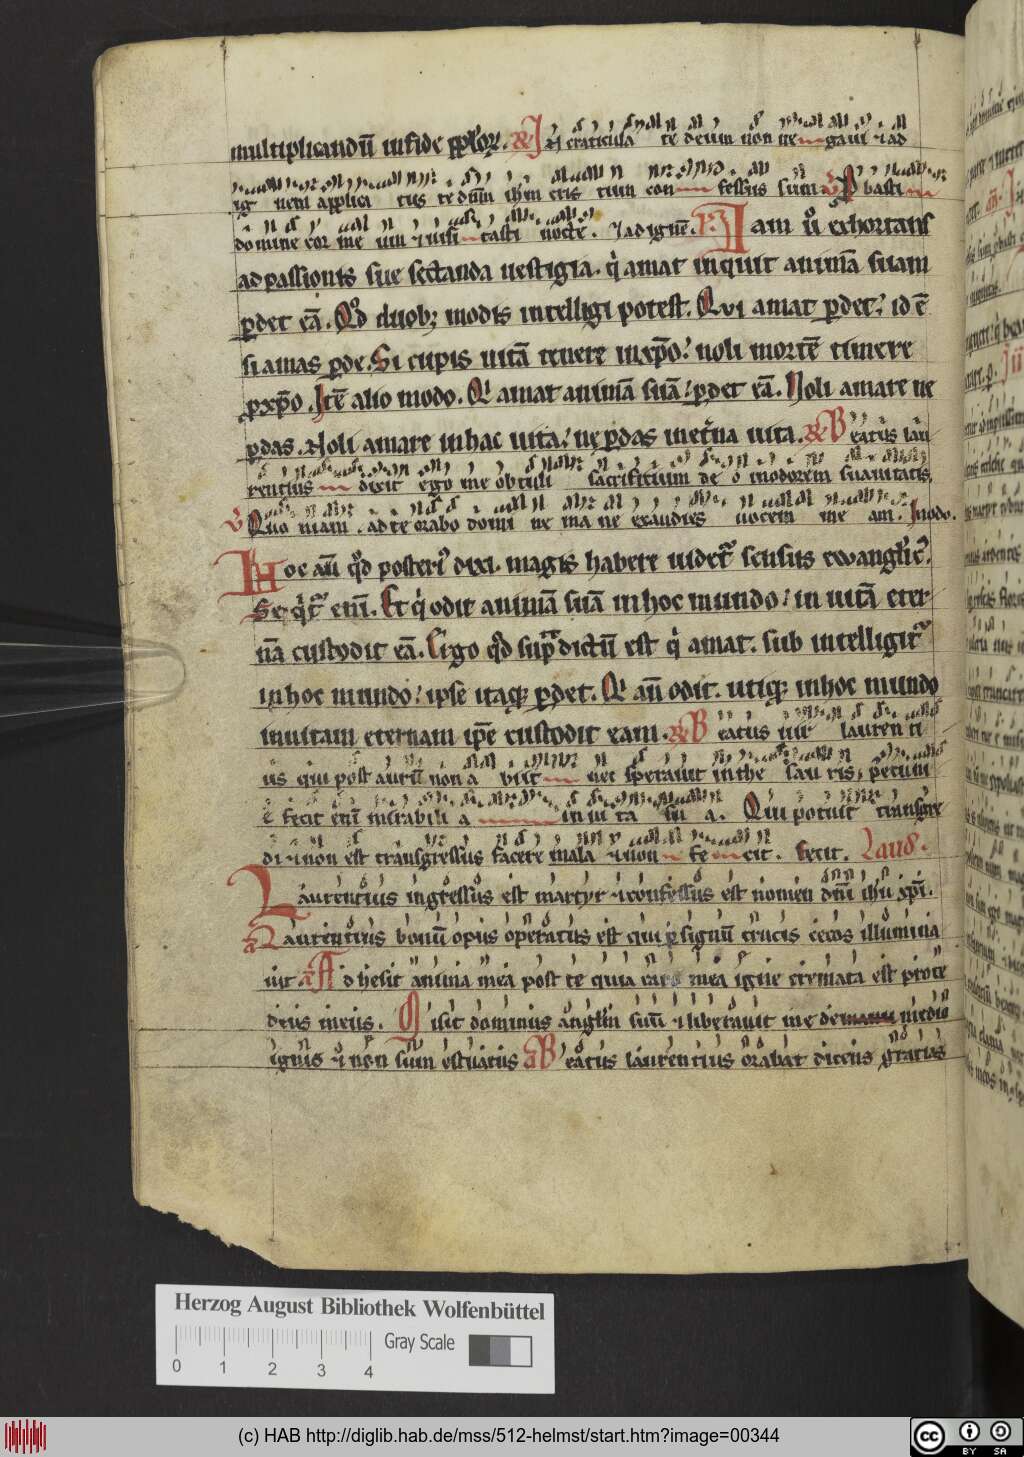 multiplicandū in fide pplōꝝ. ℟ In craticula te deum non negaui ⁊ ad
ig nem applica tus te dn̄m ihm cris tum con fessus sum ℣ P basti
domine cor me um ⁊ uisi tasti nocte. ⁊ ad ignē. Iam u̇o exhortans
ad passionis sue sectanda uestigia. qͥ amat inquit animā suam
ꝑdet eā. Qd̄ duobꝫ modis intelligi potest. Qui amat ꝑdet. id ē
si amas ꝑde. Si cupis uitā tenere in xp̄o. noli mortē timere
ꝓ xp̄o. Itē alio modo. Qi amat animā suā. ꝑdet eā. Noli amare ne
ꝑdas. Noli amare in hac uita. ne ꝑdas in et̄na uita. ℟ Beatus lau
rentius dixit ego me obtuli sacrificium deo in odorem suauitatis.
℣ Quo niam ad te orabo domi ne ma ne exaudies uocem me am. In odo.
Hoc aū qd̄ posteriꝰ dixi. magis habere uidet᷑ sensus ewanglic᷑.
Seqͥt᷑ enī. Et qͥ odit animā suā in hoc mundo. in uitā eter
nā custodit eā. Ergo qd̄ sup̄dictū est qͥ amat. sub intelligit᷑
in hoc mundo. ipse itaqꝫ ꝑdet. Qi aū odit. utiqꝫ in hoc mundo
in uitam eternam ip̄e custodit eam. ℟ Beatus uir lauren ti
us qui post aurū non a biit nec sperauit in the sau ris, pecuni
e fecit enī mirabili a in ui ta su a. Qui potuit transgre
di ⁊ non est transgressus facere mala ⁊ non fe cit. Fecit. Laud̄.
Laurentius ingressus est martyr ⁊ confessus est nomen dn̄i ihu xp̄i.
Laurentius bonū opus operatus est qui ꝑ signū crucis cecos illumina
uit. A Adhesit anima mea post te quia caro mea igne cremata est pro te
deus meus. Misit dominus anglm̄ suū ⁊ liberauit me de medio
ignis ⁊ non sum estuatus A Beatus laurentius orabat dicens gratias
Herzog August Bibliothek Wolfenbüttel
Gray Scale
0 1 2 3 4
(c) HAB http://diglib.hab.de/mss/512-helmst/start.htm?image=00344
cc BY SA